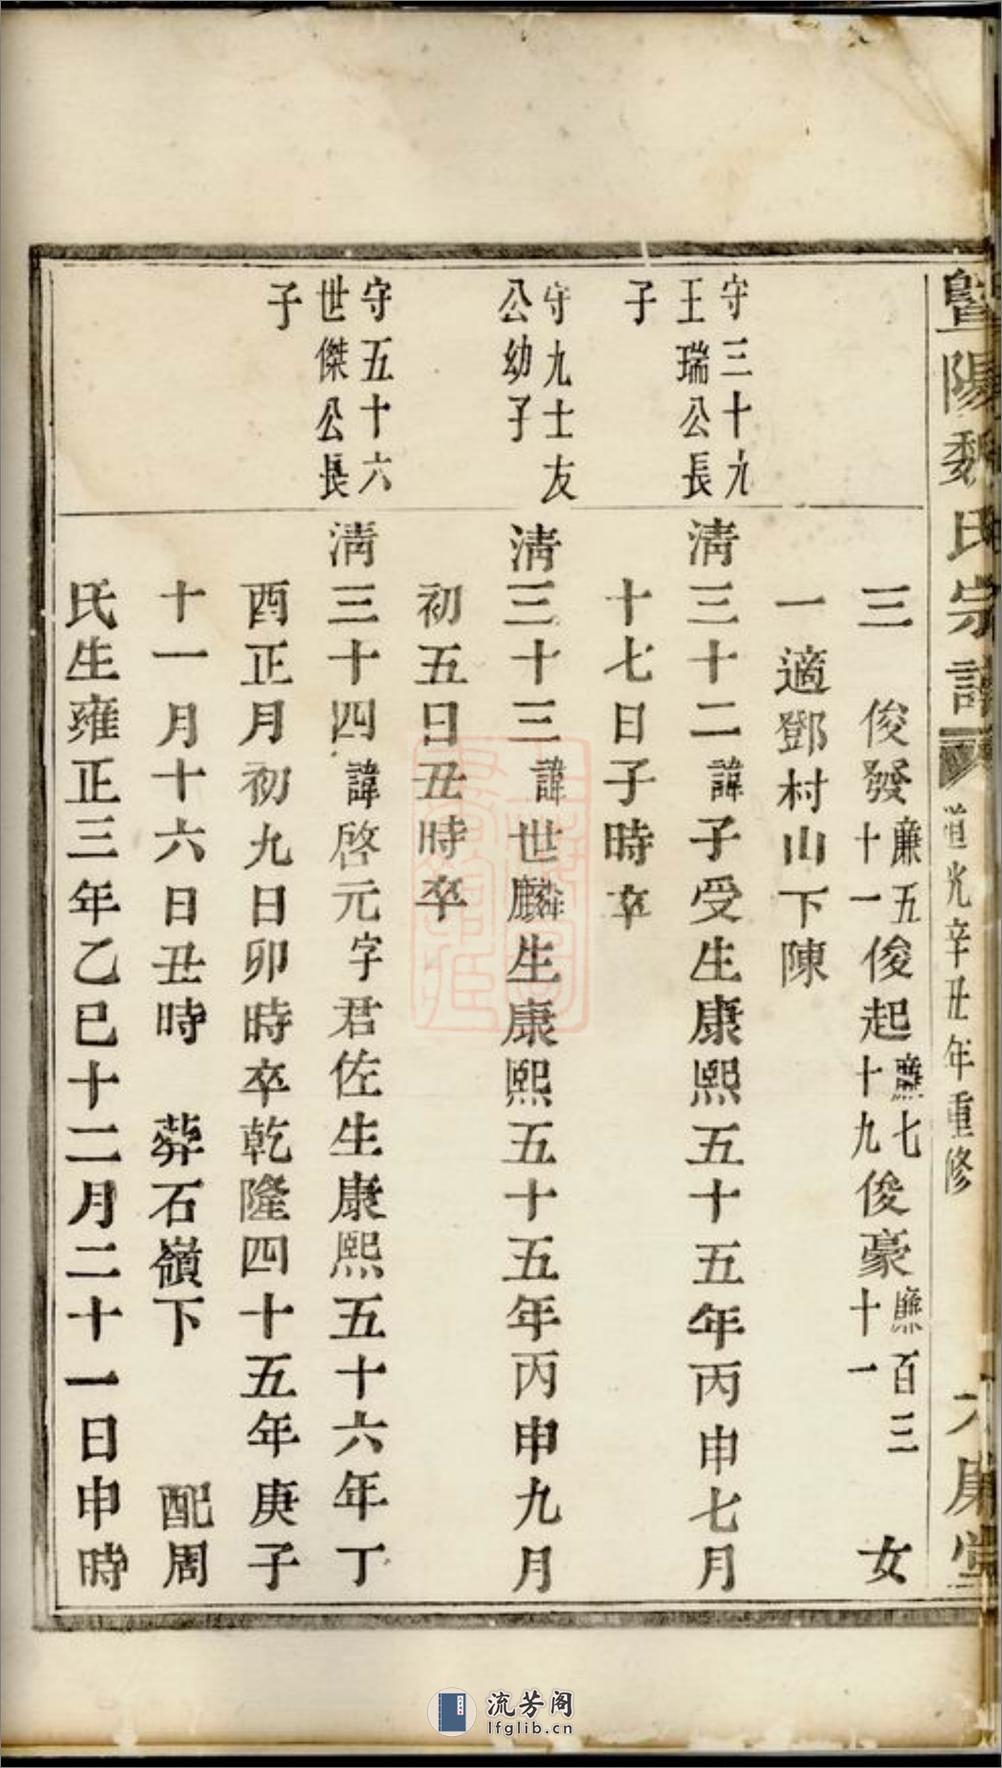 暨陽魏氏宗譜
道光辛丑年重修
三 俊發廉五十一俊起廉七十九俊豪廉百三十一 女
一適鄧村山下陳
守三十九
王瑞公長
子
清三十二諱子受生康熙五十五年丙申七月
十七日子時卒
守九士友
公幼子
清三十三諱世麟生康熙五十五年丙申九月
初五日丑時卒
守五十六
世傑公長
子
清三十四諱啓元字君佐生康熙五十六年丁
酉正月初九日卯時卒乾隆四十五年庚子
十一月十六日丑時 葬石嶺下 配周
氏生雍正三年乙巳十二月二十一日申時
流芳阁
lfglib.cn